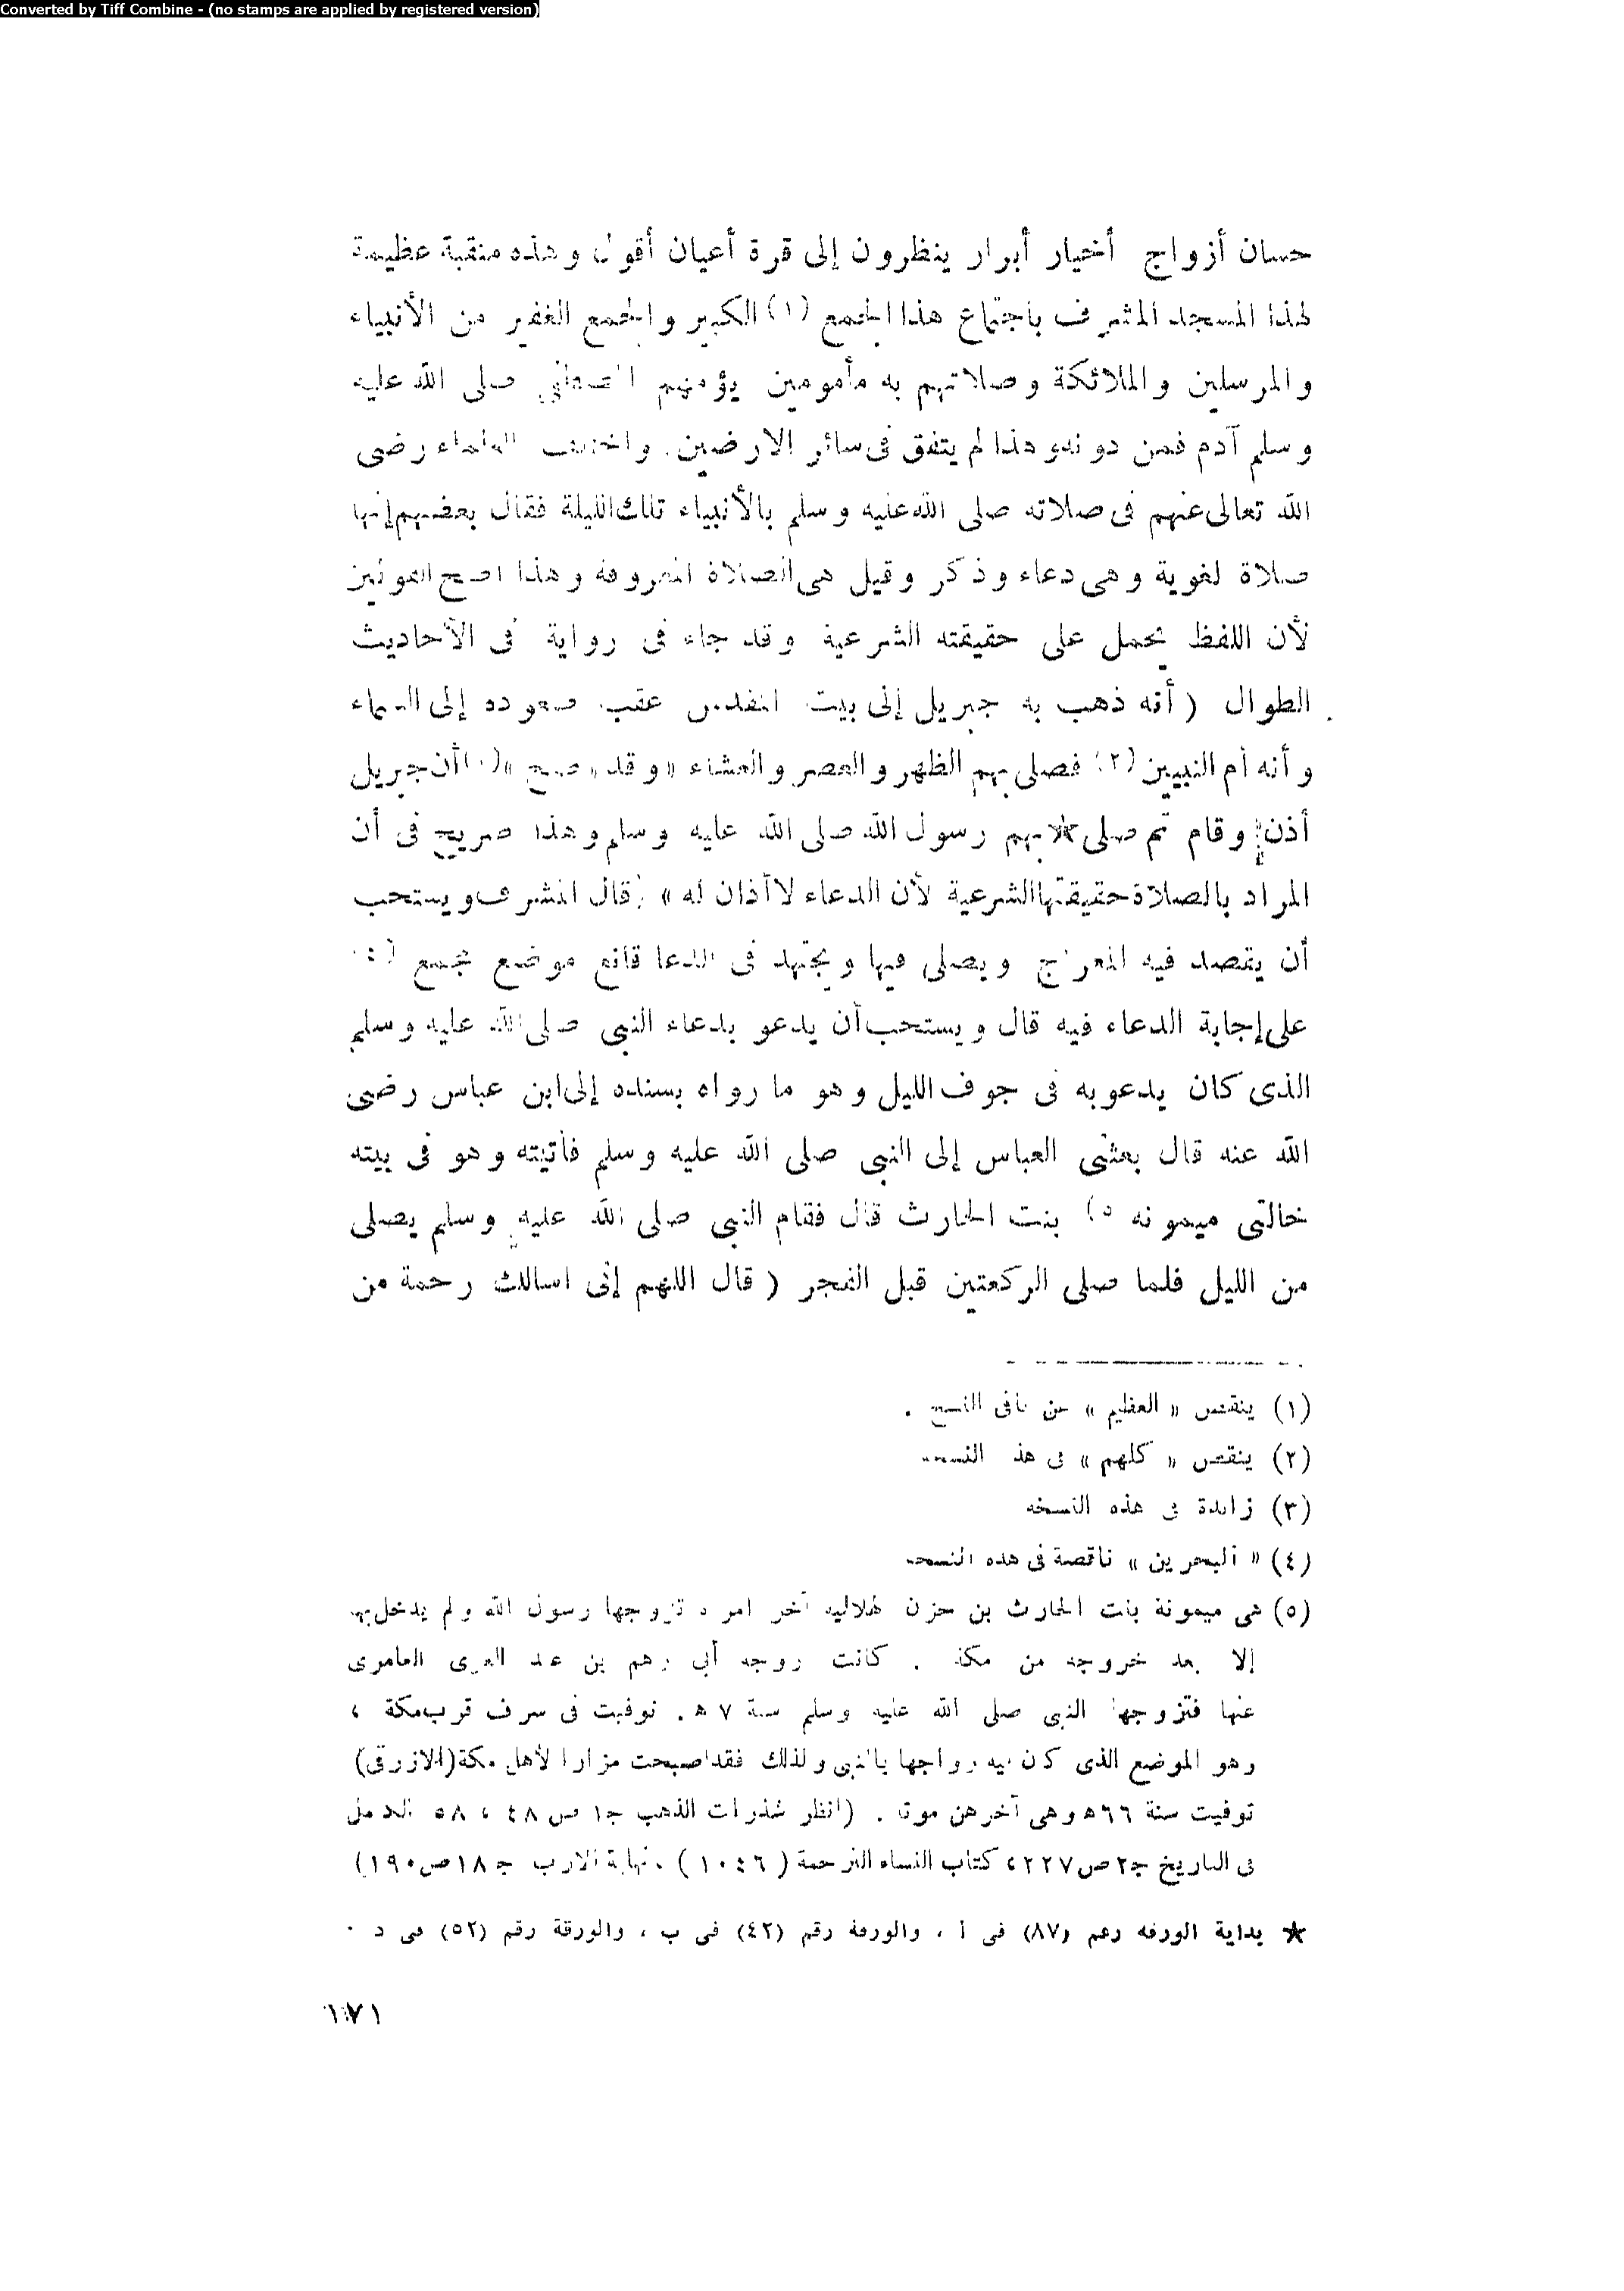 Converted by Tiff Combine - (no stamps are applied by registered version)
حسان أزواج أخيار أبرار ينظرون إلى قرة أعيان أقول وهذه منقبة عظيمة
لهذا المسجد المشرف باجتماع هذا الجمع (١) الكبير والجمع الغفير من الأنبياء
والمرسلين والملائكة وصلاتهم به مأمومين يؤمهم المصطفى صلى الله عليه
وسلم آدم فمن دونه وهذا لم يتفق فى سائر الارضين. واختلف العلماء رضى
الله تعالى عنهم فى صلاته صلى الله عليه وسلم بالأنبياء تلك الليلة فقال بعضهم إنها
صلاة لغوية وهى دعاء وذكر وقيل هى الصلاة المعروفة وهذا اصح القولين
لأن اللفظ يحمل على حقيقته الشرعية وقد جاء فى رواية فى الأحاديث
الطوال ( أنه ذهب به جبريل إلى بيت المقدس عقب صعوده إلى السماء
وأنه أم النبيين (٢) فصلى بهم الظهر والعصر والعشاء « وقد « صح » أن جبريل
أذن وقام ثم صلى * بهم رسول الله صلى الله عليه وسلم وهذا صريح فى أن
المراد بالصلاة حقيقتها الشرعية لأن الدعاء لا أذان له » قال المشرف ويستحب
أن يقصد فيه المعراج ويصلى فيها ويجتهد فى الدعا فانه موضع مجمع (٤)
على إجابة الدعاء فيه قال ويستحب أن يدعو بدعاء النبى صلى الله عليه وسلم
الذى كان يدعو به فى جوف الليل وهو ما رواه بسنده إلى ابن عباس رضى
الله عنه قال بعثنى العباس إلى النبى صلى الله عليه وسلم فأتيته وهو فى بيته
خالتى ميمونه (٥) بنت الحارث قال فقام النبى صلى الله عليه وسلم يصلى
من الليل فلما صلى الركعتين قبل الفجر ( قال اللهم إنى اسالك رحمة من
(١) ينقص « العظيم » من باقى النسخ .
(٢) ينقص « كلهم » فى هذه النسخه
(٣) زايدة فى هذه النسخه
(٤) « البحرين » ناقصة فى هذه النسخه
(٥) هى ميمونة بنت الحارث بن حزن الهلاليه آخر امرأة تزوجها رسول الله ولم يدخل بها
إلا بعد خروجه من مكة . كانت زوجه أبى رهم بن عبد العزى العامرى
عنها فتزوجها النبى صلى الله عليه وسلم سنة ٧ ه . توفيت فى سرف قرب مكة ،
وهو الموضع الذى كان فيه زواجها بالنبى ولذلك فقد اصبحت مزارا لأهل مكة (الازرقى)
توفيت سنة ٦٦ ه وهى آخرهن موتا . (انظر شذرات الذهب ج١ ص ٤٨ ، ٥٨ الكامل
فى التاريخ ج٢ ص٢٢٧ ، كتاب النساء الترجمة (١٠٤٦) ، نهاية الارب ج ١٨ ص١٩٠)
★ بداية الورقه رقم (٨٧) فى أ ، والورقة رقم (٤٢) فى ب ، والورقة رقم (٥٢) فى د .
١٧١